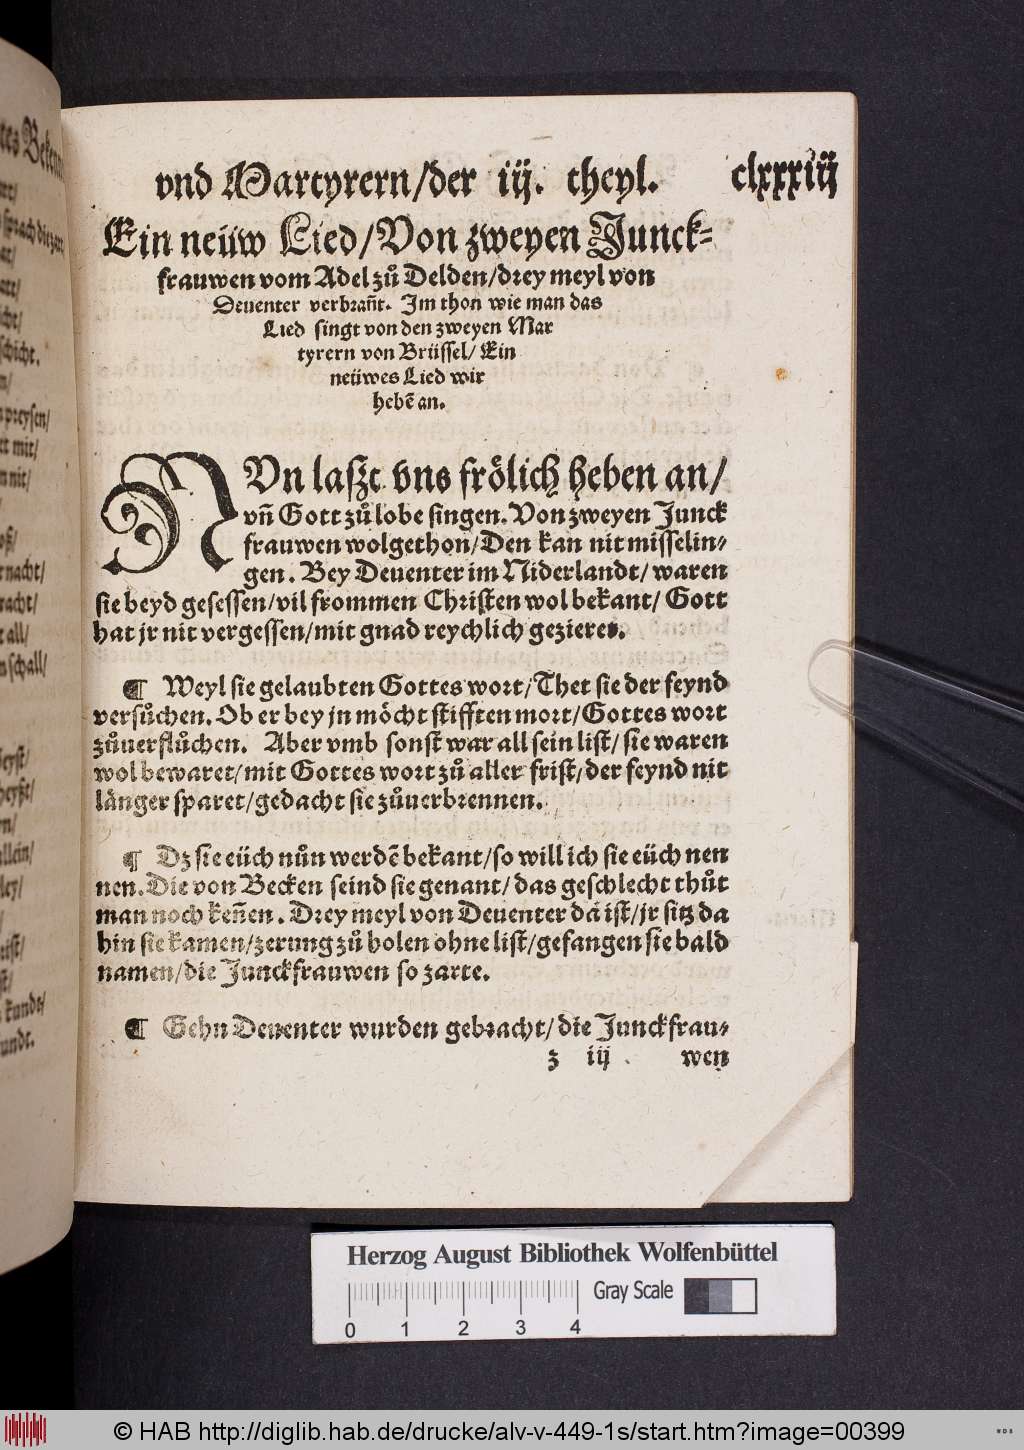 vnd Martyrern/der iij. theyl. clxxxiij
Ein neüw Lied/Von zweyen Junck-
frauwen vom Adel zů Delden/drey meyl von
Deuenter verbrañt. Im thon wie man das
Lied singt von den zweyen Mar
tyrern von Brüssel/Ein
neüwes Lied wir
hebē an.
NVn laszt vns frölich heben an/
vñ Gott zů lobe singen. Von zweyen Junck
frauwen wolgethon/Den kan nit misselin-
gen. Bey Deuenter im Niderlandt/waren
sie beyd gesessen/vil frommen Christen wol bekant/Gott
hat jr nit vergessen/mit gnad reychlich gezieret.
¶ Weyl sie gelaubten Gottes wort/Thet sie der feynd
versůchen. Ob er bey jn möcht stifften mort/Gottes wort
zůuerflůchen. Aber vmb sonst war all sein list/sie waren
wol bewaret/mit Gottes wort zů aller frist/der feynd nit
länger sparet/gedacht sie zůuerbrennen.
¶ Dz sie eüch nůn werdē bekant/so will ich sie eüch nen
nen. Die von Becken seind sie genant/das geschlecht thůt
man noch keñen. Drey meyl von Deuenter da ist/jr sitz da
hin sie kamen/zerung zů holen ohne list/gefangen sie bald
namen/die Junckfrauwen so zarte.
¶ Gehn Deuenter wurden gebracht/die Junckfrau-
z iij wen
Herzog August Bibliothek Wolfenbüttel
Gray Scale
0 1 2 3 4
© HAB http://diglib.hab.de/drucke/alv-v-449-1s/start.htm?image=00399